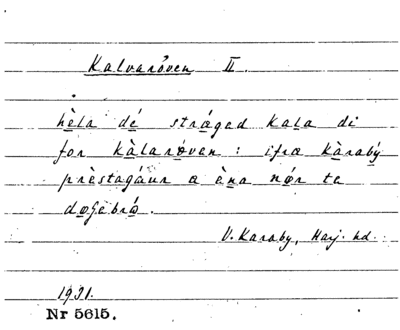 Kalvaröven II.
hèla dé stráged kala di
for kàlaróven: ifrα kàrabý
prèstagáur a èna nǿr te
dogebró.
V. Karaby, Harj. hd.
1931.
Nr 5615.